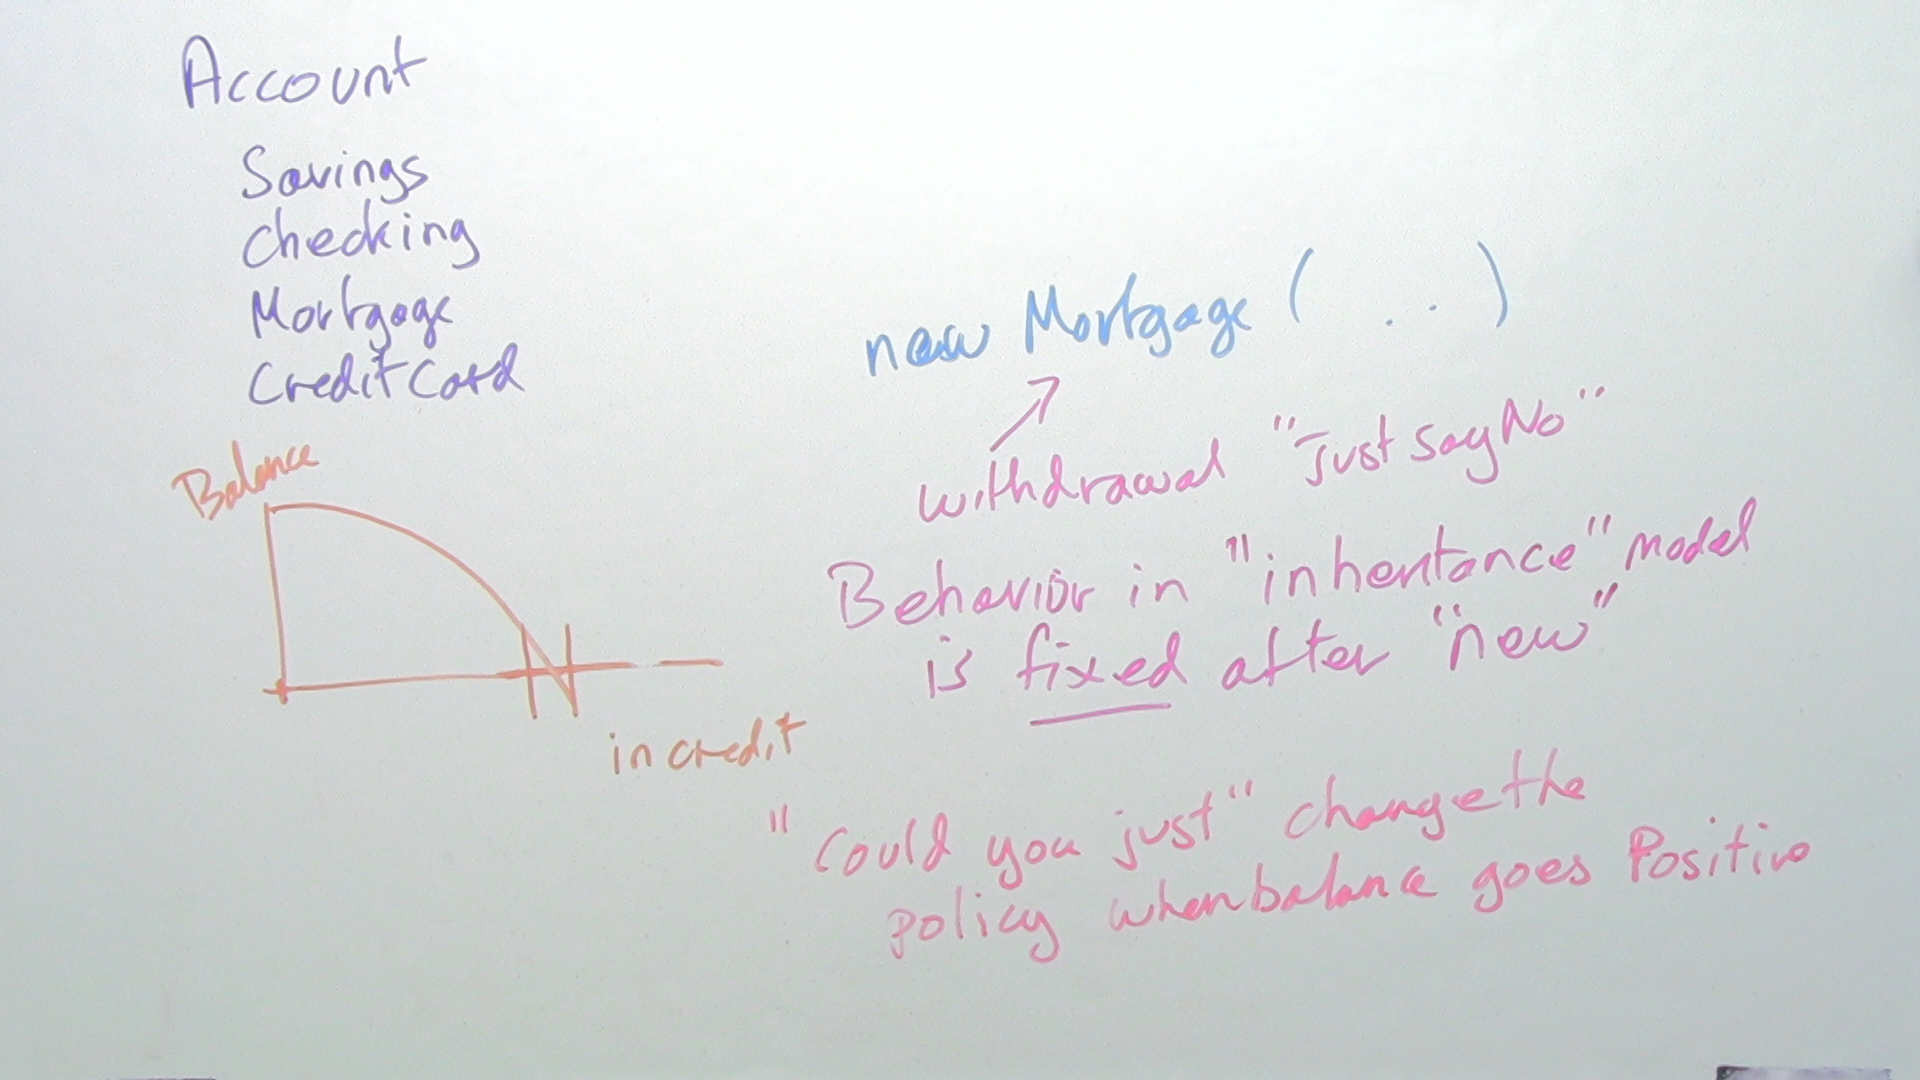 Account
Savings
Checking
Mortgage
CreditCard
Balance
in credit
new Mortgage ( . . )
withdrawal "JustSayNo"
Behavior in "inheritance" model
is fixed after "new"
"Could you just" change the
policy when balance goes Positive